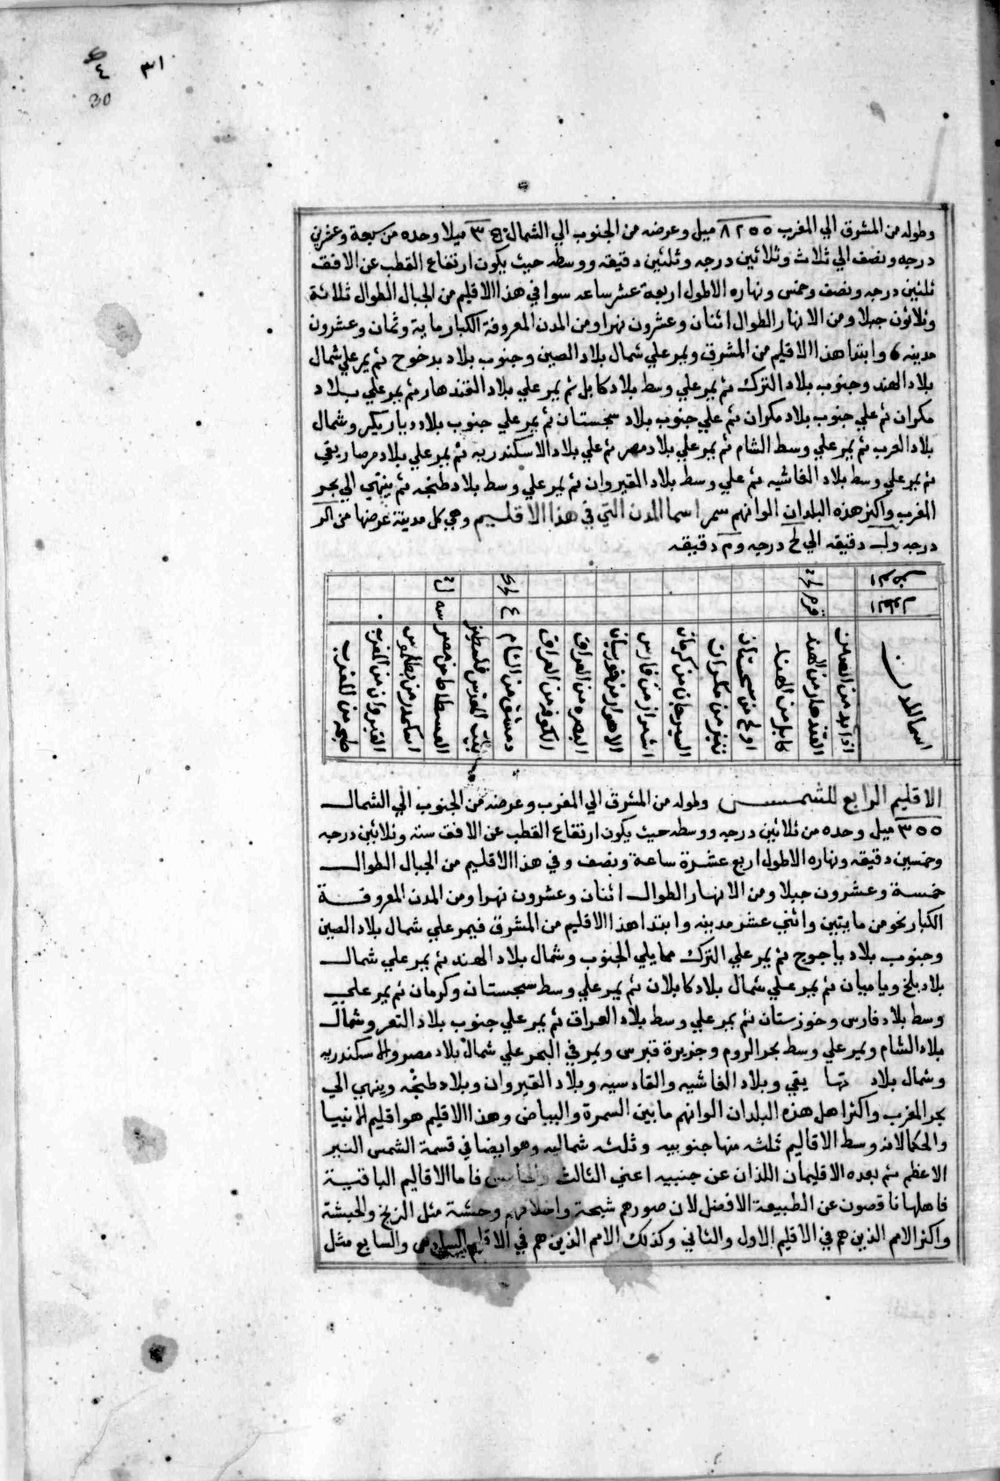 ٣١
٤
30
وطوله من المشرق الي المغرب ٨٢٥٥ ميل وعرضه من الجنوب الي الشمال ميلا وحده من سبعة وعشرين
درجه ونصف الي ثلاث وثلاثين درجه وثلثين دقيقه ووسطه حيث يكون ارتفاع القطب عن الافق
ثلثين درجه ونصف وخمس ونهاره الاطول اربعة عشر ساعه سوا في هذا الاقليم من الجبال الطوال ثلاثة
وثلاثون جبلا ومن الانهار الطوال اثنان وعشرون نهرا ومن المدن المعروفة الكبار ماية وثمان وعشرون
مدينه وابتدا هذا الاقليم من المشرق ويمر علي شمال بلاد الصين وجنوب بلاد ثم يمر علي شمال
بلاد الهند وجنوب بلاد الترك ثم يمر علي وسط بلاد كابل ثم يمر علي بلاد القندهار ثم يمر علي بلاد
مكران ثم علي جنوب بلاد مكران ثم علي جنوب بلاد سجستان ثم يمر علي جنوب بلاد ديار بيكر وشمال
بلاد العرب ثم يمر علي وسط الشام ثم يمر علي بلاد مصر ثم علي بلاد الاسكندريه ثم يمر علي بلاد
ثم يمر علي وسط بلاد الغاشيه ثم علي وسط بلاد القيروان ثم يمر علي وسط بلاد طنجه ثم ينتهي الي بحر
المغرب واكثر هذه البلدان الوانهم سمر اسما المدن التي في هذا الاقليم وهي كل مدينة عرضها من
درجه ول دقيقه الي لح درجه وم دقيقه
اسما البلدان
من الصين
القندهار من الهند
كابل من الهند
من سجستان
من مكران
السيرجان من كرمان
اشيراز من فارس
الاهواز من خوزستان
البصره من العراق
الكوفه من العراق
دمشق من الشام
بيت المقدس فلسطين
الفسطاط من مصر
القيروان من المغرب
طنجه من المغرب
الاقليم الرابع للشمس وطوله من المشرق الي المغرب وعرضه من الجنوب الي الشمال
٣٥٥ ميل وحده من ثلاثين درجه ووسطه حيث يكون ارتفاع القطب عن الافق ستة وثلاثين درجه
وخمسين دقيقه ونهاره الاطول اربع عشرة ساعة ونصف وفي هذا الاقليم من الجبال الطوال
خمسة وعشرون جبلا ومن الانهار الطوال اثنان وعشرون نهرا ومن المدن المعروفة
الكبار نحو من مايتين واثني عشر مدينه وابتدا هذا الاقليم من المشرق فيمر علي شمال بلاد الصين
وجنوب بلاد ياجوج ثم يمر علي الترك مما يلي الجنوب وشمال بلاد الهند ثم يمر علي شمال
بلاد بلخ وباميان ثم يمر علي شمال بلاد كابلان ثم يمر علي وسط سجستان وكرمان ثم يمر علي
وسط بلاد فارس وخوزستان ثم يمر علي وسط بلاد العراق ثم يمر علي جنوب بلاد الثغر وشمال
بلاد الشام ويمر علي وسط بحر الروم وجزيرة قبرس ويمر في البحر علي شمال بلاد مصر والاسكندريه
وشمال بلاد يقي وبلاد الغاشيه والقادسيه وبلاد القيروان وبلاد طنجه وينهي الي
بحر المغرب واكثر اهل هذه البلدان الوانهم ما بين السمرة والبياض وهذا الاقليم هو اقليم الانبيا
والحكما لانه وسط الاقاليم ثلثه منها جنوبيه وثلثه شماليه وهو ايضا في قسمة الشمس النير
الاعظم ثم بعده الاقليمان اللذان عن جنبيه اعني الثالث والخامس فاما الاقاليم الباقية
فاهلها ناقصون عن الطبيعة الافضل لان صورهم شبحة واخلاقهم وحشة مثل الزنج والحبشة
واكثر الامم الذين هم في الاقليم الاول والثاني وكذلك الامم الذين هم في الاقليم السادس والسابع مثل